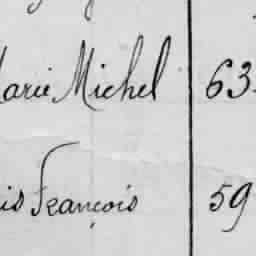 Marie Michel 63
is François 59